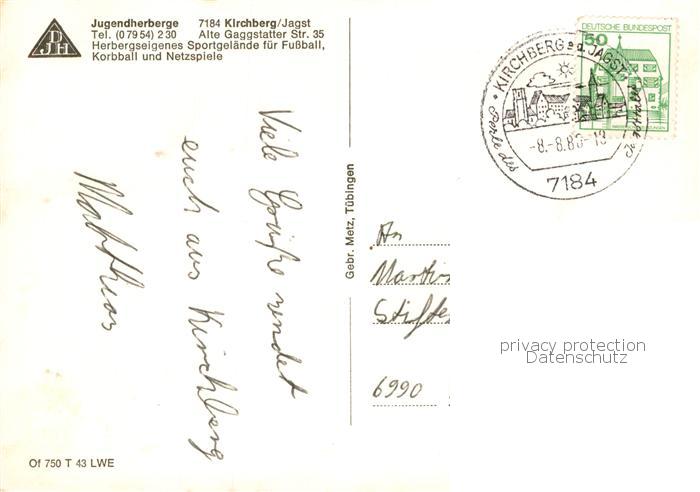 DJH
Jugendherberge 7184 Kirchberg/Jagst
Tel. (0 79 54) 2 30 Alte Gaggstatter Str. 35
Herbergseigenes Sportgelände für Fußball,
Korbball und Netzspiele
Viele Grüße sendet
euch aus Kirchberg
Matthias
Of 750 T 43 LWE
Gebr. Metz, Tübingen
DEUTSCHE BUNDESPOST
50
KIRCHBERG a.d. JAGST
Perle des
-8.-8.80-18
7184
An
Martin
Stifte
6990
privacy protection
Datenschutz